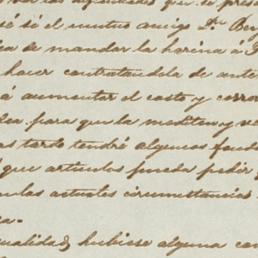 dificultades que se pres
sé si el mutuo amigo Dn. Ber
de mandar la harina á
hacer contratandola de ante
á aumentar el costo y corre
para que la mediten y re
tarde tendré algunos fondo
que articulos pueda pedir
las actuales circunstancias

ualidad, hubiese alguna can